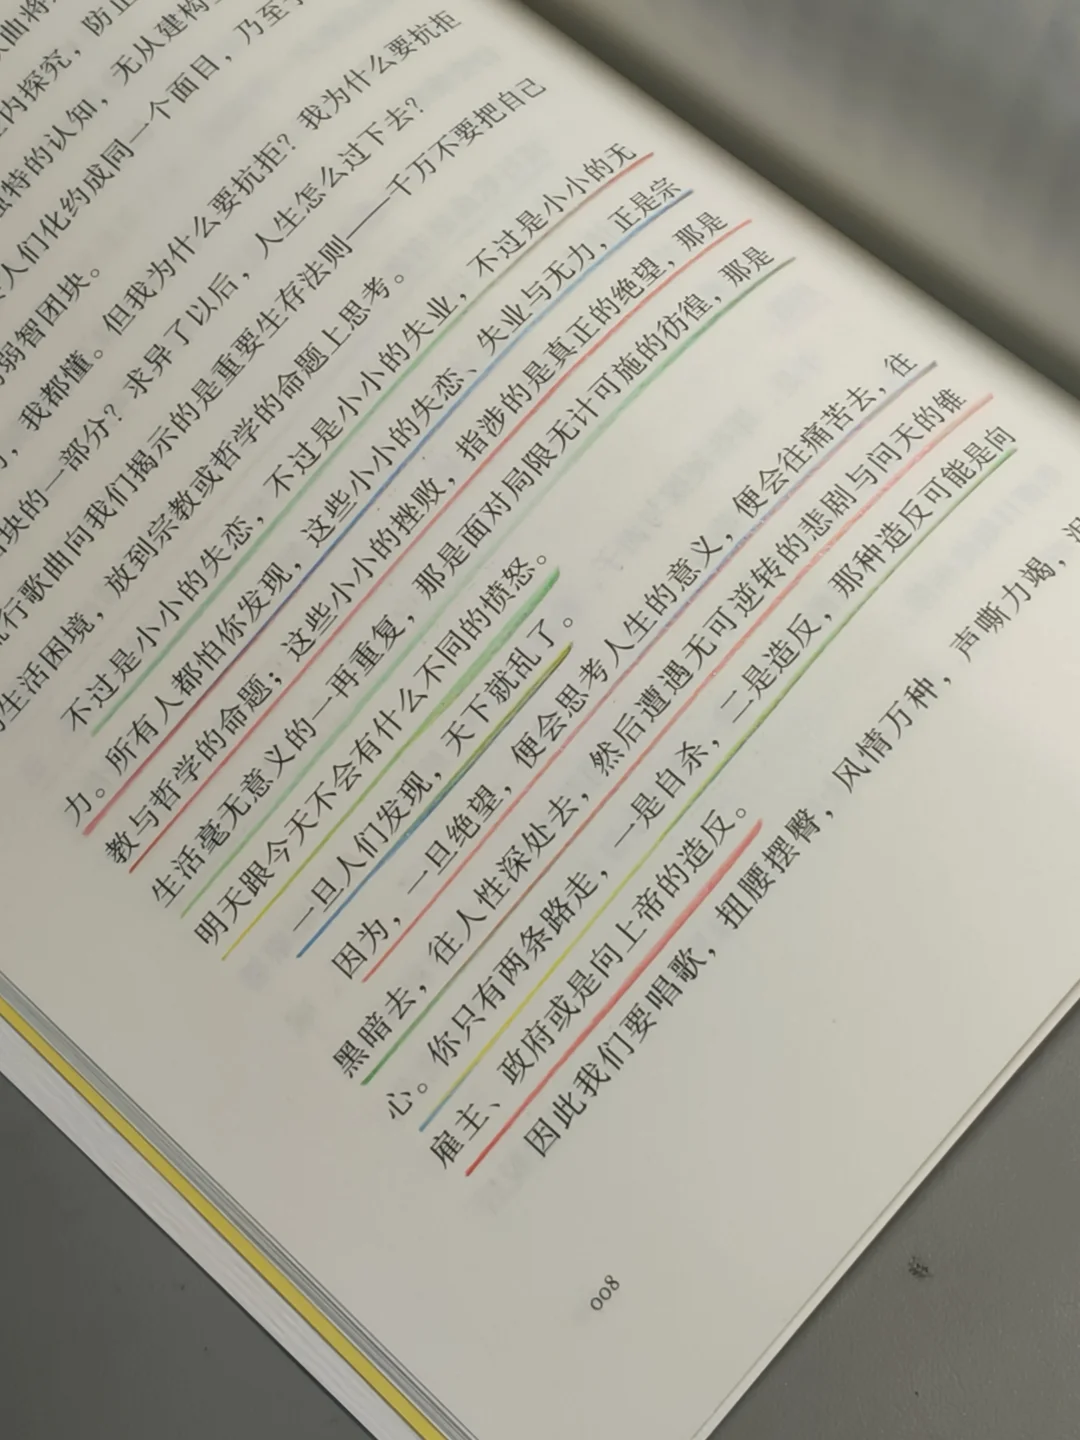 曲将
内探究，防止
独特的认知，无从建构
人们化约成同一个面目，乃至
弱智团块。
，我都懂。但我为什么要抗拒？我为什么要抗拒
块的一部分？求异了以后，人生怎么过下去？
行歌曲向我们揭示的是重要生存法则——千万不要把自己
生活困境，放到宗教或哲学的命题上思考。
不过是小小的失恋，不过是小小的失业，不过是小小的无
力。所有人都怕你发现，这些小小的失恋、失业与无力，正是宗
教与哲学的命题；这些小小的挫败，指涉的是真正的绝望，那是
生活毫无意义的一再重复，那是面对局限无计可施的彷徨，那是
明天跟今天不会有什么不同的愤怒。
一旦人们发现，天下就乱了。
因为，一旦绝望，便会思考人生的意义，便会往痛苦去，往
黑暗去，往人性深处去，然后遭遇无可逆转的悲剧与问天的锥
心。你只有两条路走，一是自杀，二是造反，那种造反可能是向
雇主、政府或是向上帝的造反。
因此我们要唱歌，扭腰摆臀，风情万种，声嘶力竭，
008